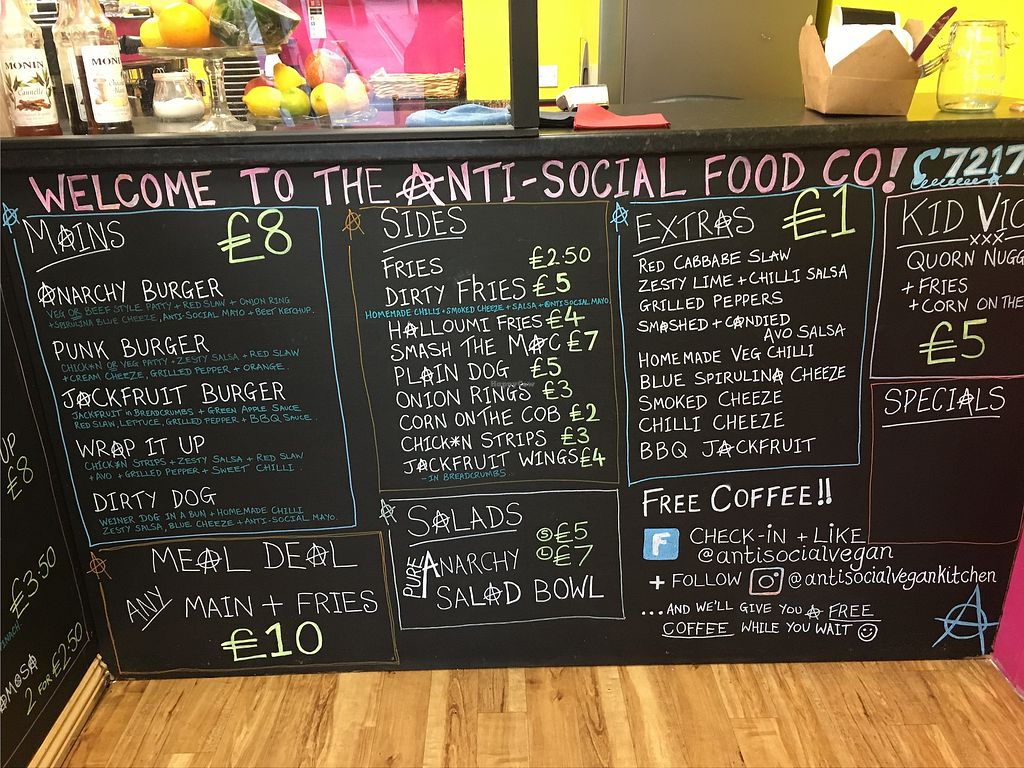 MONIN
MONIN
WELCOME TO THE ANTI-SOCIAL FOOD CO!
7217
MAINS £8
ANARCHY BURGER
VEG OR BEEF STYLE PATTY + RED SLAW + ONION RING
+SPIRULINA BLUE CHEEZE, ANTI-SOCIAL MAYO + BEET KETCHUP.
PUNK BURGER
CHICK*N OR VEG PATTY + ZESTY SALSA + RED SLAW
+ CREAM CHEEZE, GRILLED PEPPER + ORANGE.
JACKFRUIT BURGER
JACKFRUIT in BREADCRUMBS + GREEN APPLE SAUCE
RED SLAW, LETTUCE, GRILLED PEPPER + B.B.Q SAUCE.
WRAP IT UP
CHICK*N STRIPS + ZESTY SALSA + RED SLAW
+ AVO + GRILLED PEPPER + SWEET CHILLI.
DIRTY DOG
WEINER DOG IN A BUN + HOMEMADE CHILLI
ZESTY SALSA, BLUE CHEEZE + ANTI-SOCIAL MAYO.
MEAL DEAL
ANY MAIN + FRIES
£10
SIDES
FRIES £2.50
DIRTY FRIES £5
HOMEMADE CHILLI + SMOKED CHEEZE + SALSA + ANTISOCIAL MAYO
HALLOUMI FRIES £4
SMASH THE MAC £7
PLAIN DOG £5
ONION RINGS £3
CORN ON THE COB £2
CHICK*N STRIPS £3
JACKFRUIT WINGS £4
- IN BREADCRUMBS
SALADS
PURE ANARCHY
SALAD BOWL
S £5
L £7
EXTRAS £1
RED CABBABE SLAW
ZESTY LIME + CHILLI SALSA
GRILLED PEPPERS
SMASHED + CANDIED
AVO SALSA
HOMEMADE VEG CHILLI
BLUE SPIRULINA CHEEZE
SMOKED CHEEZE
CHILLI CHEEZE
BBQ JACKFRUIT
FREE COFFEE!!
F CHECK-iN + LiKE
@antisocialvegan
+ FOLLOW @antisocialvegankitchen
...AND WE'LL GIVE YOU A FREE
COFFEE WHILE YOU WAIT
KID VIC
XXX
QUORN NUGG
+ FRIES
+ CORN ON THE
£5
SPECIALS
UP
£8
£3.50
2 FOR £2.50